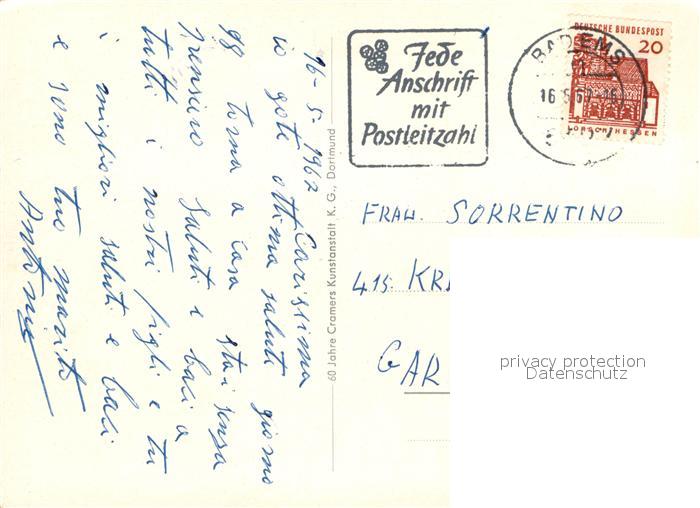 16-5-1967
Carissima
io gote ottima saluti giorno
98 torna a casa stai senza
pensiero saluti e baci a
tutti i nostri figli e tu
i migliori saluti e baci
e sono tuo marito
Antonio
60 Jahre Cramers Kunstanstalt K. G., Dortmund
Jede
Anschrift
mit
Postleitzahl
BAD EMS
DEUTSCHE BUNDESPOST
20
LORSCH/HESSEN
FRAU. SORRENTINO
415 KR
GAR
privacy protection
Datenschutz